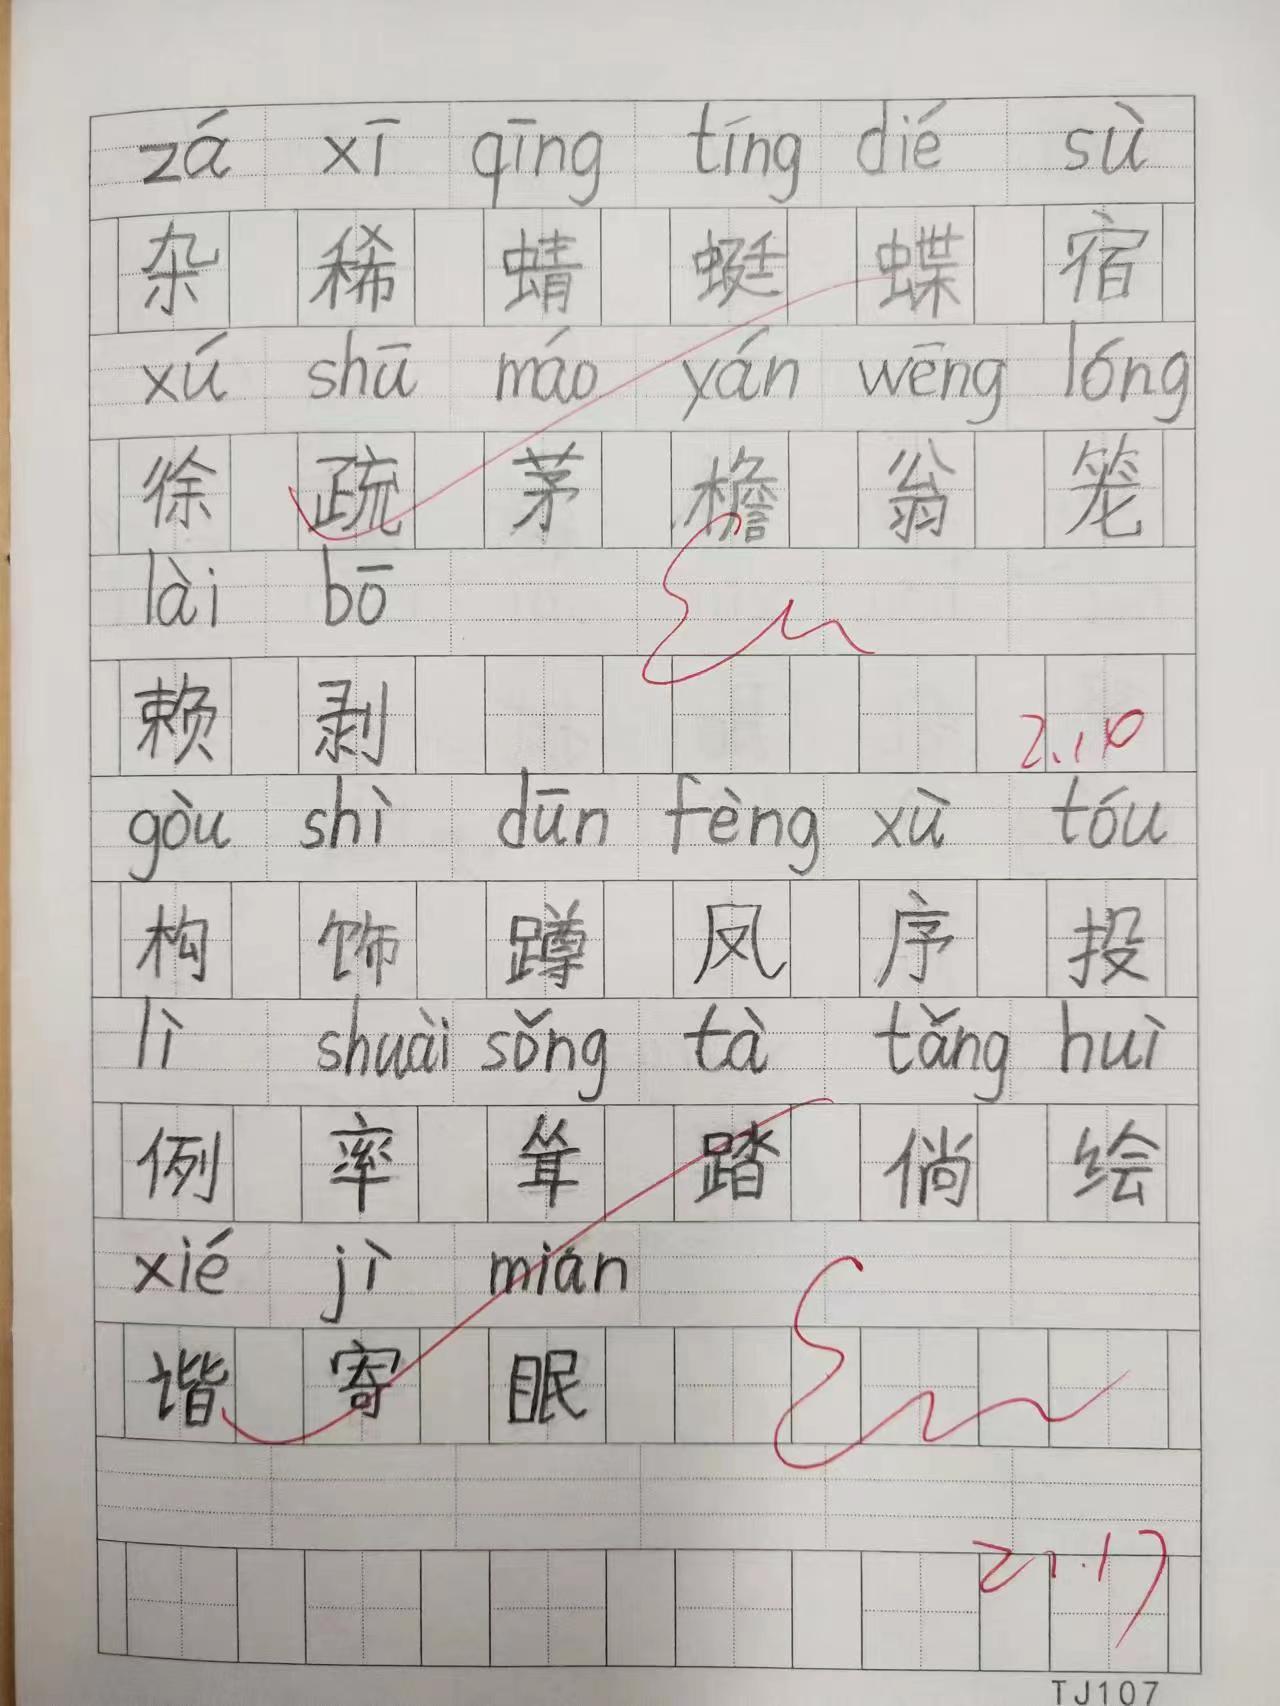 zá xī qīng tíng dié sù
杂 稀 蜻 蜓 蝶 宿
xú shū máo yán wēng lóng
徐 疏 茅 檐 翁 笼
lài bō
赖 剥
2.10
gòu shì dūn fèng xù tóu
构 饰 蹲 凤 序 投
lì shuài sǒng tà tǎng huì
例 率 耸 踏 倘 绘
xié jì mián
谐 寄 眠
2.17
TJ107